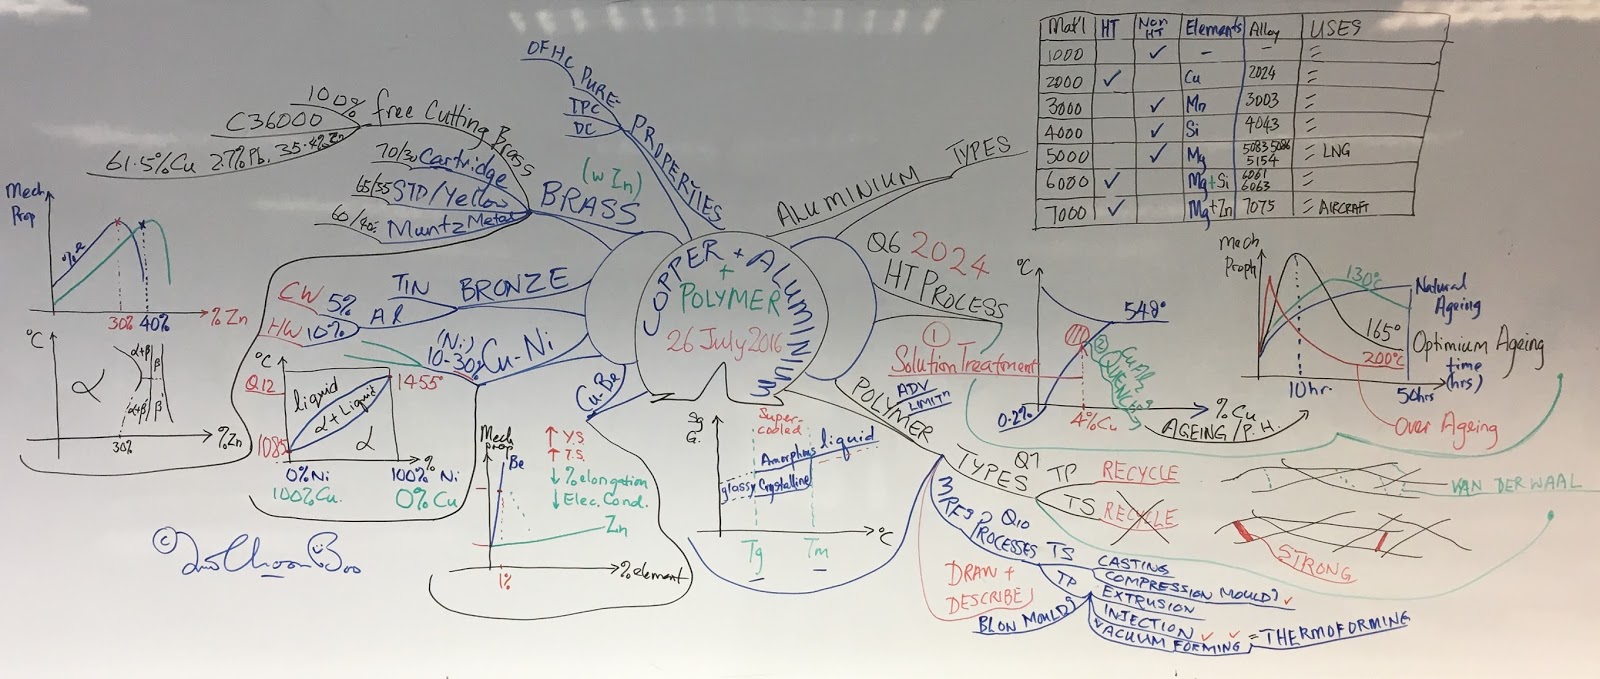 COPPER + ALUMINIUM
+
POLYMER
26 July 2016
PROPERTIES
PURE
OFHC
TPC
DC
BRASS
(w Zn)
free Cutting Brass
100%
C36000
61.5%Cu 2.7%Pb. 35.4%Zn
70/30 Cartridge
65/35 STD/Yellow
60/40 Muntz Metal
Mech
Prop
%Re
30% 40% % Zn
°C
α
α+β
β
α+β
β
30%
%Zn
BRONZE
TIN
AR
CW 5%
HW 10%
Cu-Ni
(Ni)
10-30%
°C
Q12
liquid
α+Liquid
α
1455°
1085
0%Ni
100%Cu.
100% Ni
0% Cu
%
Cu-Be
Mech
prop
Be
↑ Y.S.
↑ T.S.
↓ % elongation
↓ Elec. Cond.
Zn
1%
% element
© 
ALUMINIUM
TYPES
Mat'l HT Non HT Elements Alloy USES
1000 ✓ – – =
2000 ✓ Cu 2024 =
3000 ✓ Mn 3003 =
4000 ✓ Si 4043 =
5000 ✓ Mg 5083 5086 5154 = LNG
6000 ✓ Mg+Si 6061 6063 =
7000 ✓ Mg+Zn 7075 = AIRCRAFT
Q6 2024
HT PROCESS
①
Solution Treatment
°C
548°
②
QUENCHG
0.2%
4%Cu
% Cu
AGEING / P.H.
Mech
Proph
130°C
Natural
Ageing
165°
200°C
Optimium Ageing
time
(hrs)
10hr.
50hrs
Over Ageing
POLYMER
ADV
LIMITn
Sp
G.
Super-
cooled
liquid
Amorphous
glassy
Crystalline
Tg
Tm
°C
TYPES
Q7
TP RECYCLE
TS RECYCLE
VAN DER WAAL
STRONG
Q10
PROCESSES
TS
CASTING
COMPRESSION MOULDg ✓
TP
EXTRUSION
INJECTION ✓
VACUUM FORMING ✓ = THERMOFORMING
BLOW MOULDg
DRAW +
DESCRIBE